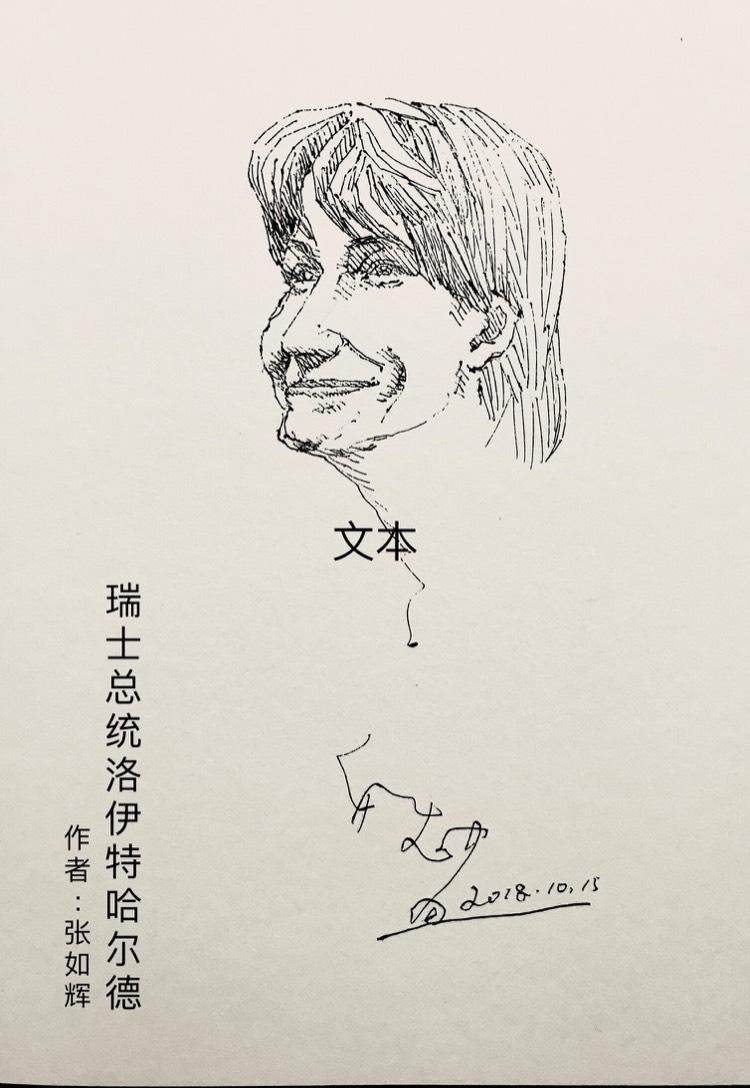 文本
瑞士总统洛伊特哈尔德
作者：张如辉
2018.10.15